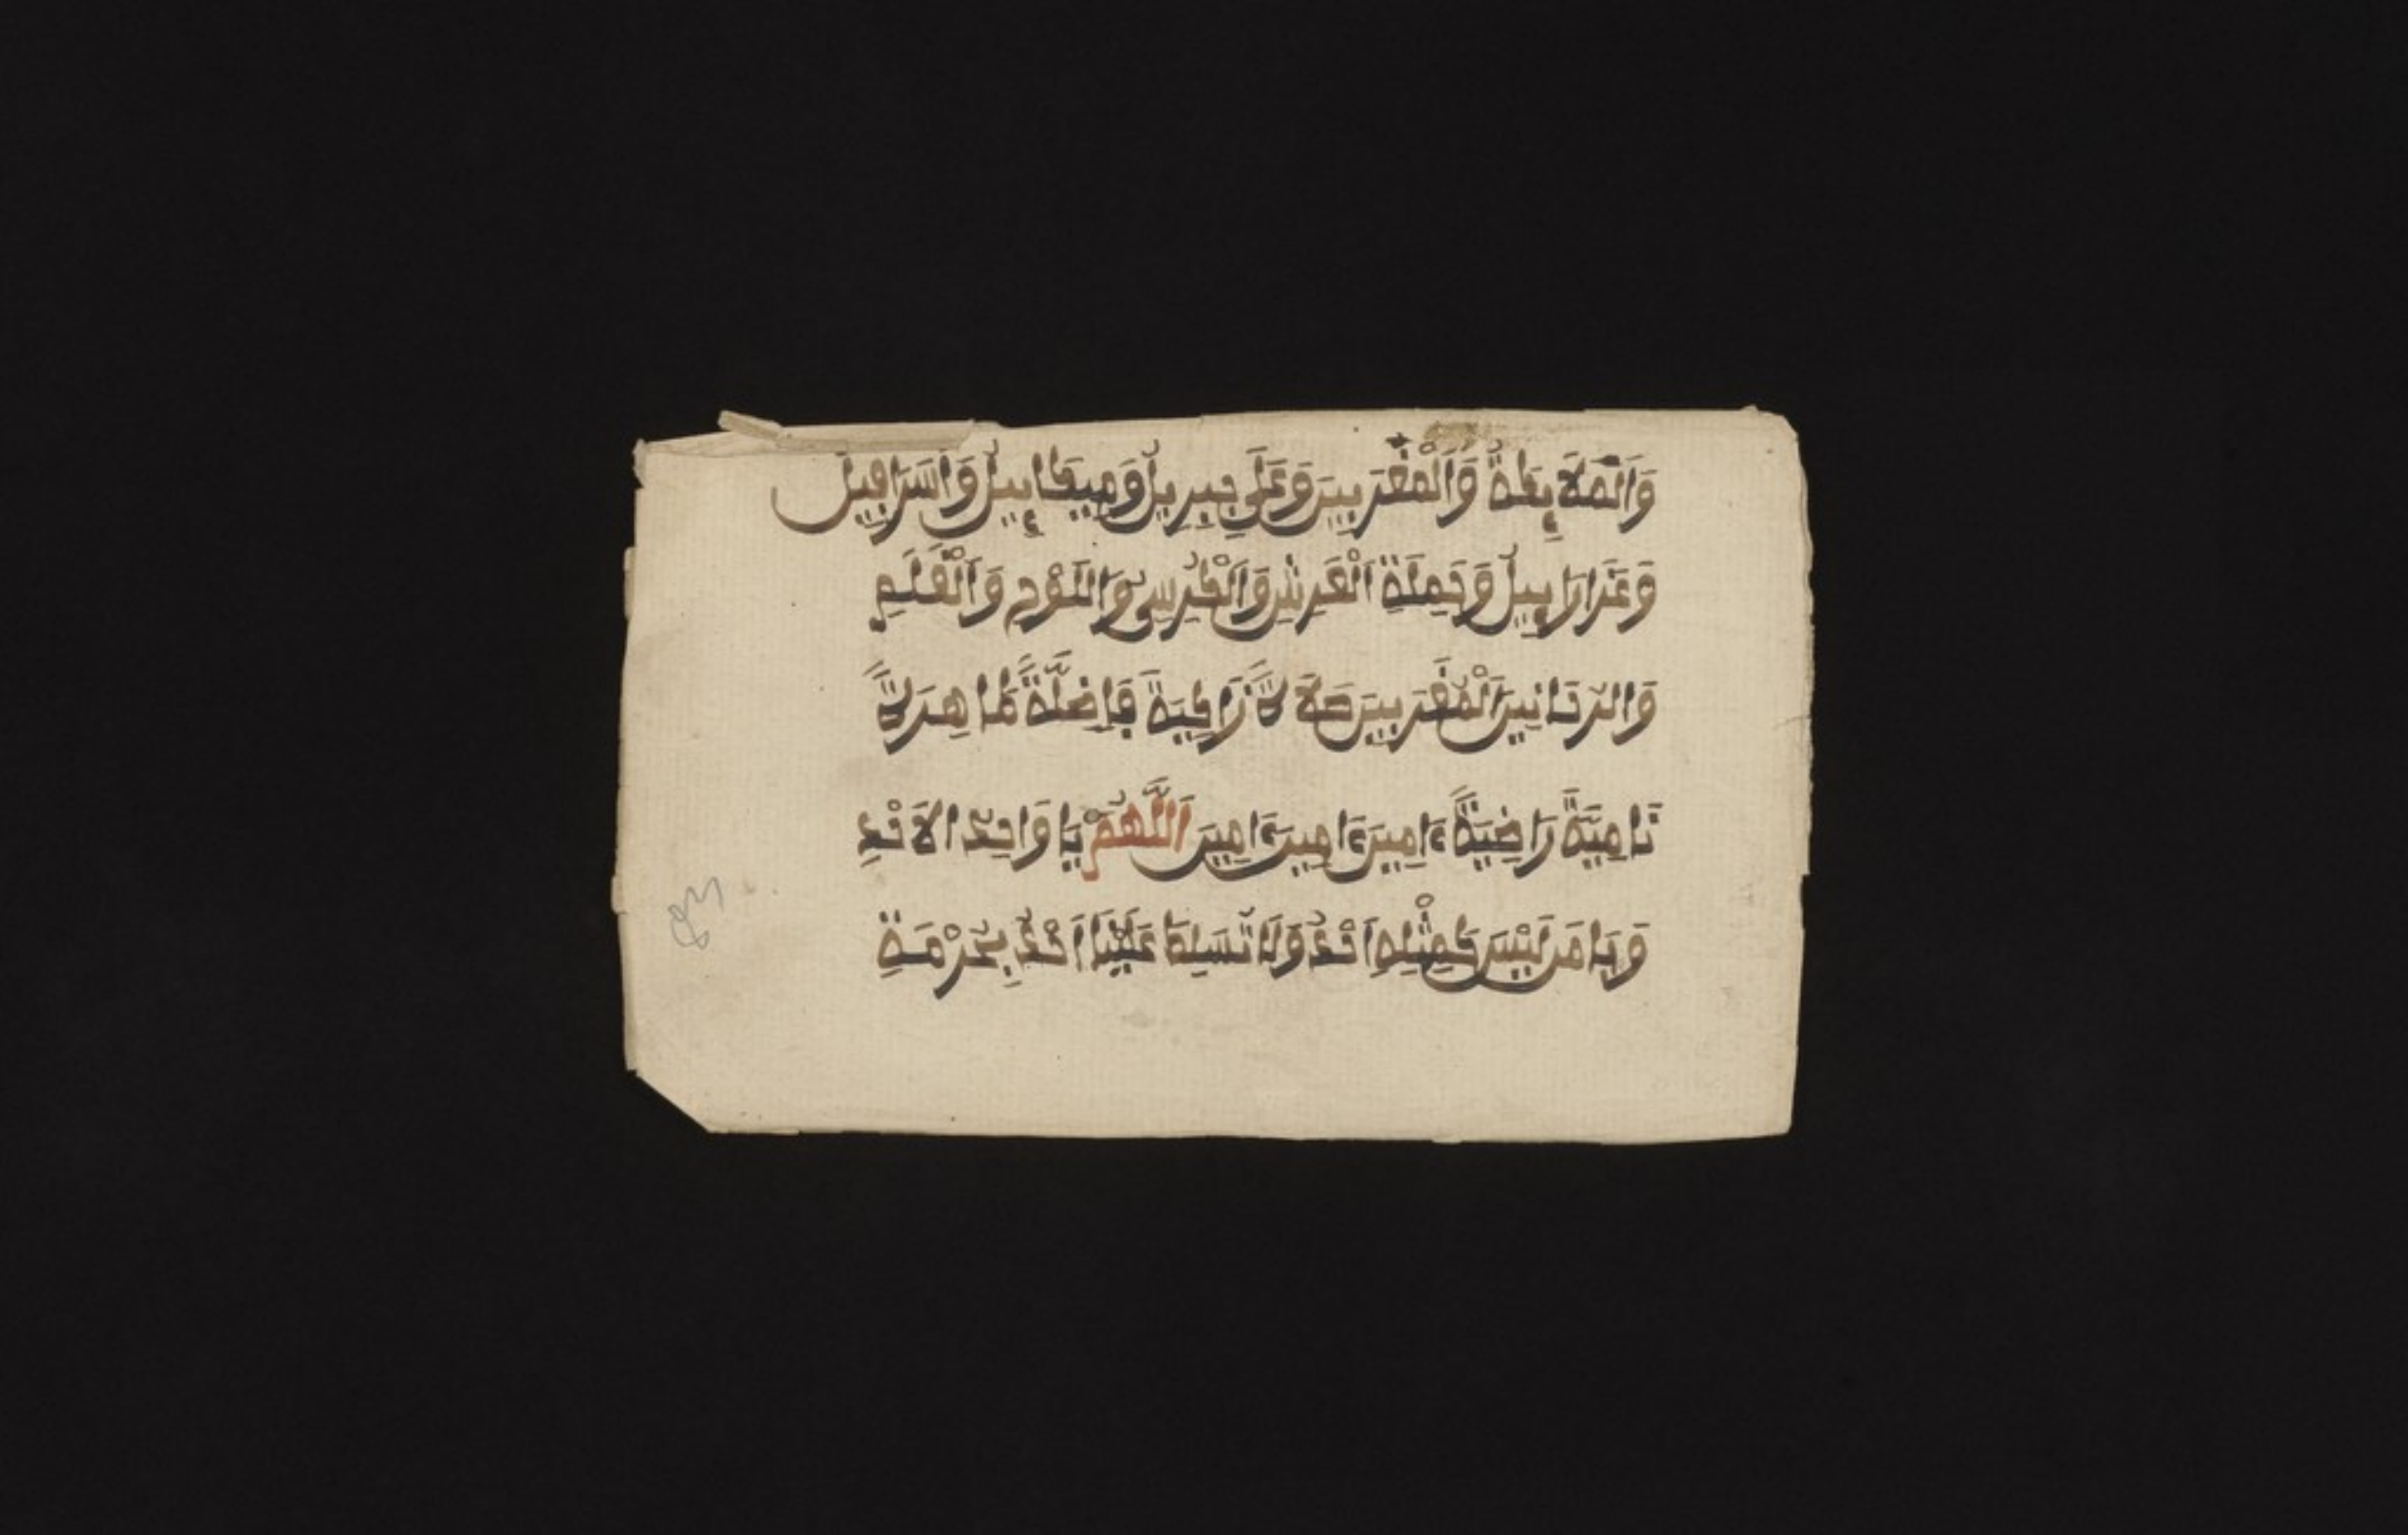 وَالْمَلَآئِكَةُ وَالْمُقَرَّبِينَ وَعَلَى جِبْرِيلَ وَمِيكَائِيلَ وَاِسْرَافِيلَ
وَعَزْرَايِيلَ وَحَمَلَةِ الْعَرْشِ وَالْكُرْسِيِّ وَاللَّوْحِ وَالْقَلَمِ
وَالرَّحَانِيِينَ الْمُقَرَّبِينَ صَلَاةً زَاكِيَةً فَاضِلَةً طَاهِرَةً
نَامِيَةً رَاضِيَةً ءَامِينَ ءَامِينَ ءَامِينَ اَللَّهُمَّ يَا وَاحِدُ الاَحَدِ
وَيَا مَن لَيْسَ كَمِثْلِهِ اَحَدٌ وَلَا تُسَلِطْ عَلَيْنَا اَحَدٌ بِحُرْمَةِ